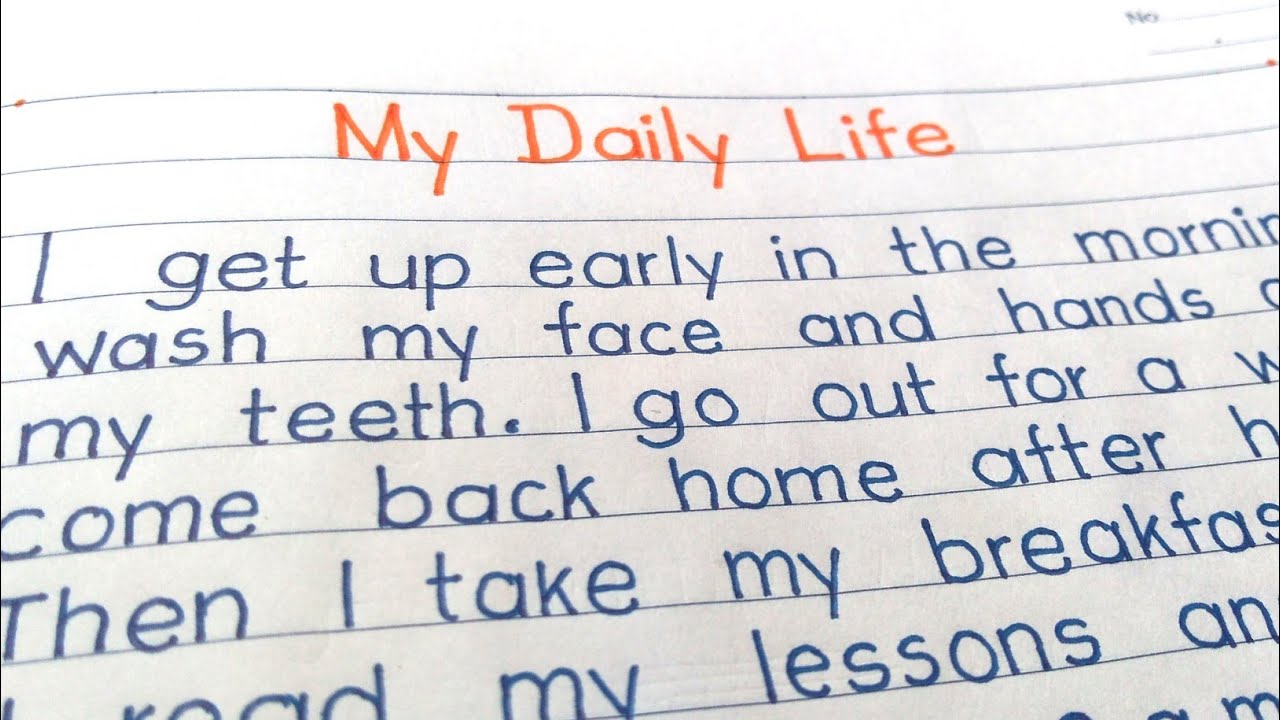 No
My Daily Life
I get up early in the mornin
wash my face and hands
my teeth. I go out for a w
come back home after h
Then I take my breakfas
I read my lessons an